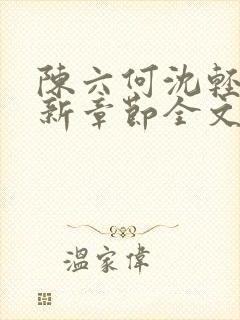 陳六何沈輕
新章節全文
溫家偉